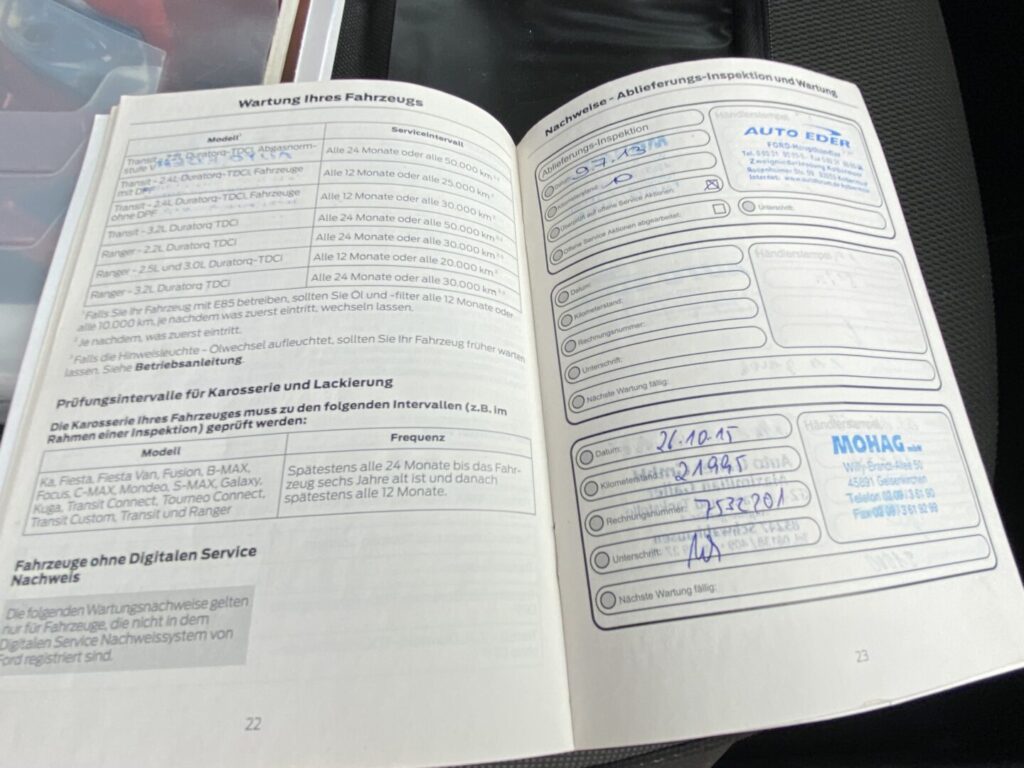 Wartung Ihres Fahrzeugs
Modell¹ Serviceintervall
Transit - 2.2L Duratorq-TDCI, Abgasnorm-
stufe V Alle 24 Monate oder alle 50.000 km
Transit - 2.4L Duratorq-TDCI, Fahrzeuge
mit DPF Alle 12 Monate oder alle 25.000 km
Transit - 2.4L Duratorq-TDCI, Fahrzeuge
ohne DPF Alle 12 Monate oder alle 30.000 km
Transit - 3.2L Duratorq TDCI Alle 24 Monate oder alle 50.000 km
Ranger - 2.2L Duratorq TDCI Alle 24 Monate oder alle 30.000 km
Ranger - 2.5L und 3.0L Duratorq-TDCI Alle 12 Monate oder alle 20.000 km
Ranger - 3.2L Duratorq-TDCI Alle 24 Monate oder alle 30.000 km
¹ Falls Sie Ihr Fahrzeug mit E85 betreiben, sollten Sie Öl und -filter alle 12 Monate oder
alle 10.000 km, je nachdem was zuerst eintritt, wechseln lassen.
² Je nachdem, was zuerst eintritt.
³ Falls die Hinweisleuchte - Ölwechsel aufleuchtet, sollten Sie Ihr Fahrzeug früher warten
lassen. Siehe Betriebsanleitung.
Prüfungsintervalle für Karosserie und Lackierung
Die Karosserie Ihres Fahrzeuges muss zu den folgenden Intervallen (z.B. im
Rahmen einer Inspektion) geprüft werden:
Modell Frequenz
Ka, Fiesta, Fiesta Van, Fusion, B-MAX,
Focus, C-MAX, Mondeo, S-MAX, Galaxy,
Kuga, Transit Connect, Tourneo Connect,
Transit Custom, Transit und Ranger
Spätestens alle 24 Monate bis das Fahr-
zeug sechs Jahre alt ist und danach
spätestens alle 12 Monate.
Fahrzeuge ohne Digitalen Service
Nachweis
Die folgenden Wartungsnachweise gelten
nur für Fahrzeuge, die nicht in dem
Digitalen Service Nachweissystem von
Ford registriert sind.
22
Nachweise - Ablieferungs-Inspektion und Wartung
Ablieferungs-Inspektion
Datum: 9.7.13
Kilometerstand: 10
Überprüft auf offene Service Aktionen:
Offene Service Aktionen abgearbeitet:
Händlerstempel
AUTO EDER
Unterschrift:
Datum:
Kilometerstand:
Rechnungsnummer:
Unterschrift:
Nächste Wartung fällig:
Händlerstempel
Datum: 26.10.15
Kilometerstand: 21995
Rechnungsnummer: 7532201
Unterschrift:
Nächste Wartung fällig:
Händlerstempel
MOHAG mbH
Willy-Brandt-Allee 50
45891 Gelsenkirchen
Telefon
Fax
23